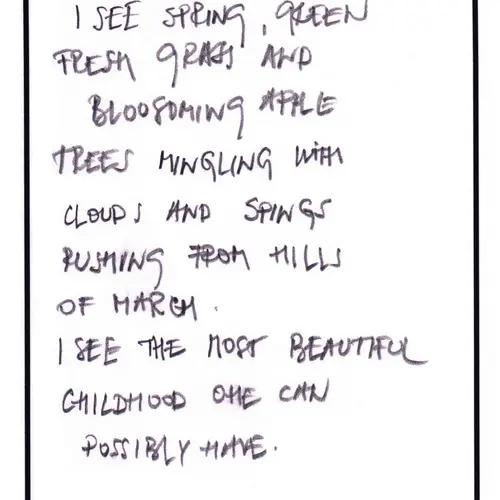 I SEE SPRING, GREEN
FRESH GRASS AND
BLOOSOMING APPLE
TREES MINGLING WITH
CLOUDS AND SPINGS
RUSHING FROM HILLS
OF MARCH.
I SEE THE MOST BEAUTIFUL
CHILDHOOD ONE CAN
POSSIBLY HAVE.